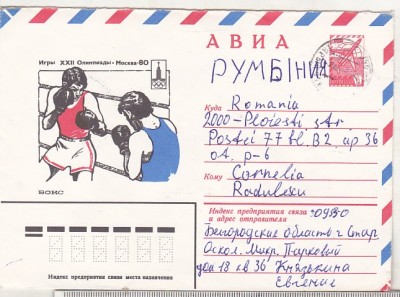 АВИА
Игры XXII Олимпиады • Москва-80
РУМБІНИЯ
Куда Romania
2000-Ploiesti str
Postei 77 bl. B2 ap 36
et. p-6
Кому Cornelia
Radulescu
БОКС
Индекс предприятия связи 309530
и адрес отправителя
Белгородские области г Стар
Оскол. Микр. Парковый
дом 18 кв 36 Князькина
Евгение
Индекс предприятия связи места назначения